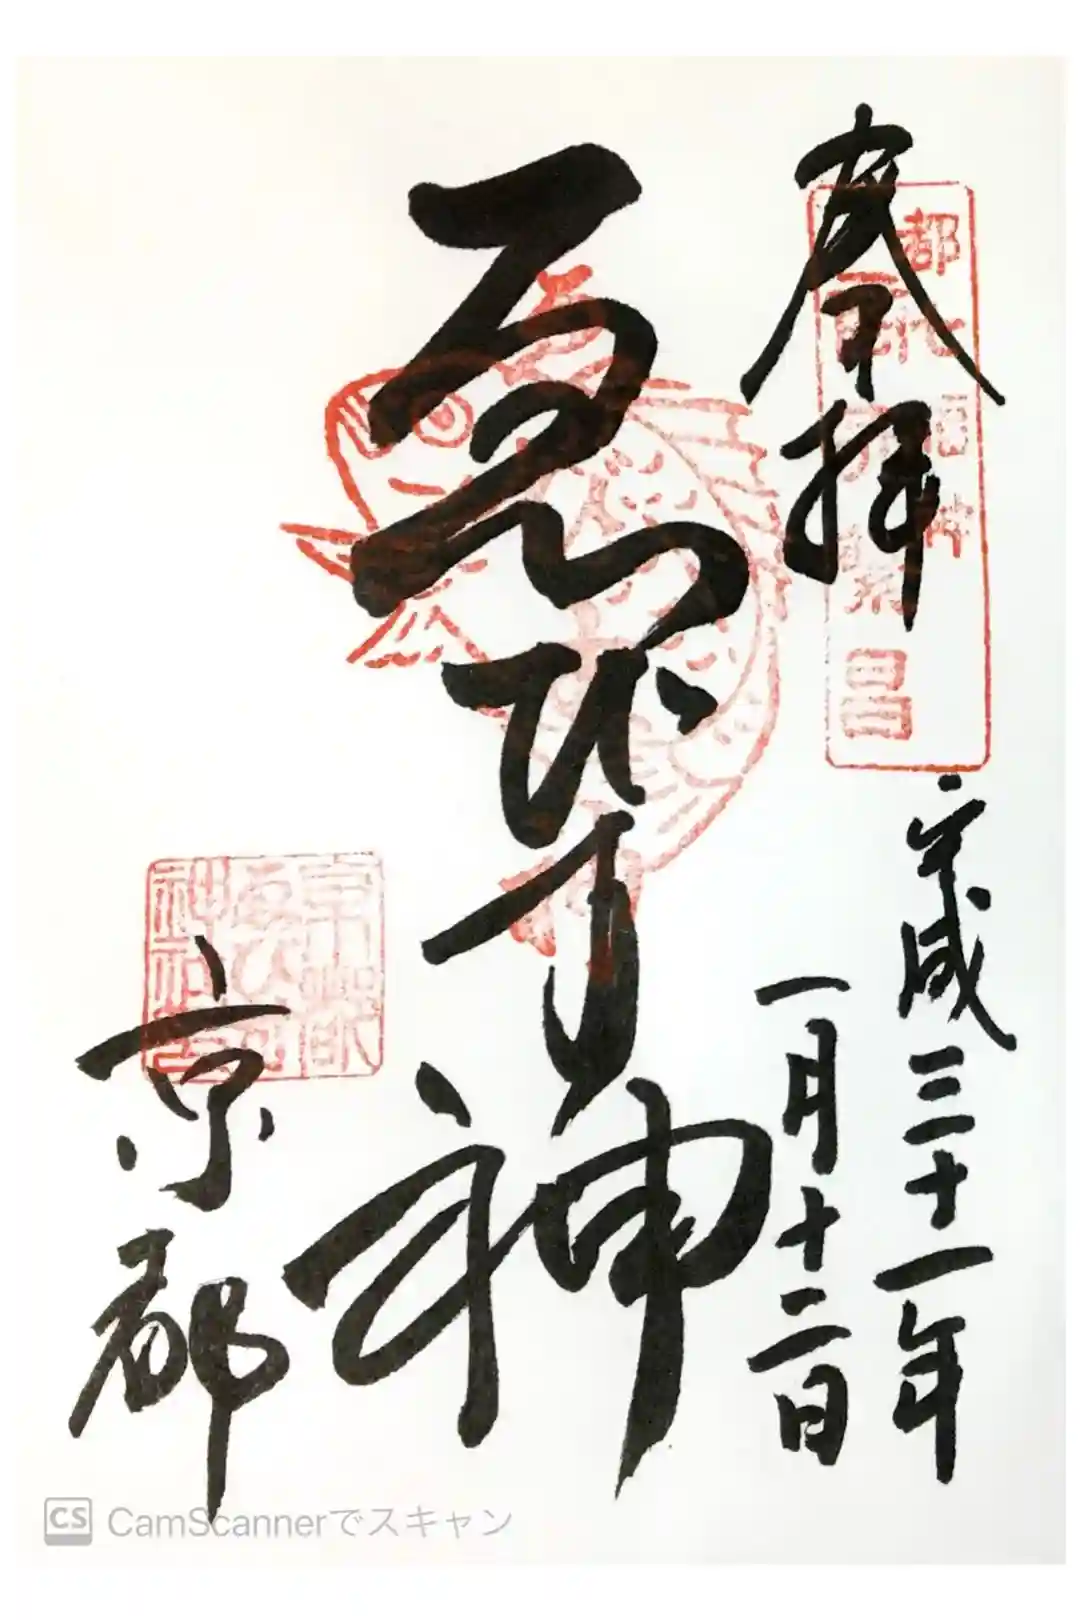 奉拝
都七福神
商売繁昌
平成三十一年
一月十二日
ゑびす神
京都
CS CamScannerでスキャン